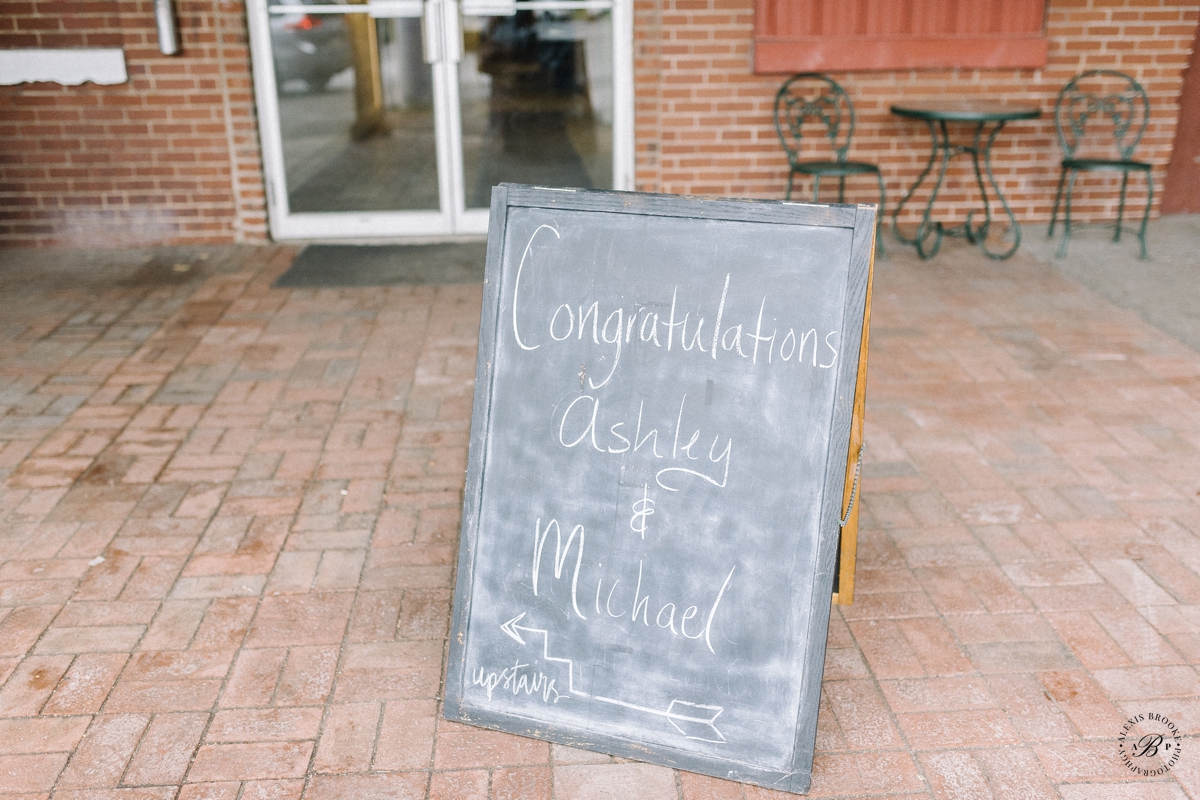 Congratulations
Ashley
&
Michael
upstairs
ALEXIS BROOKE
A B P
PHOTOGRAPHGY